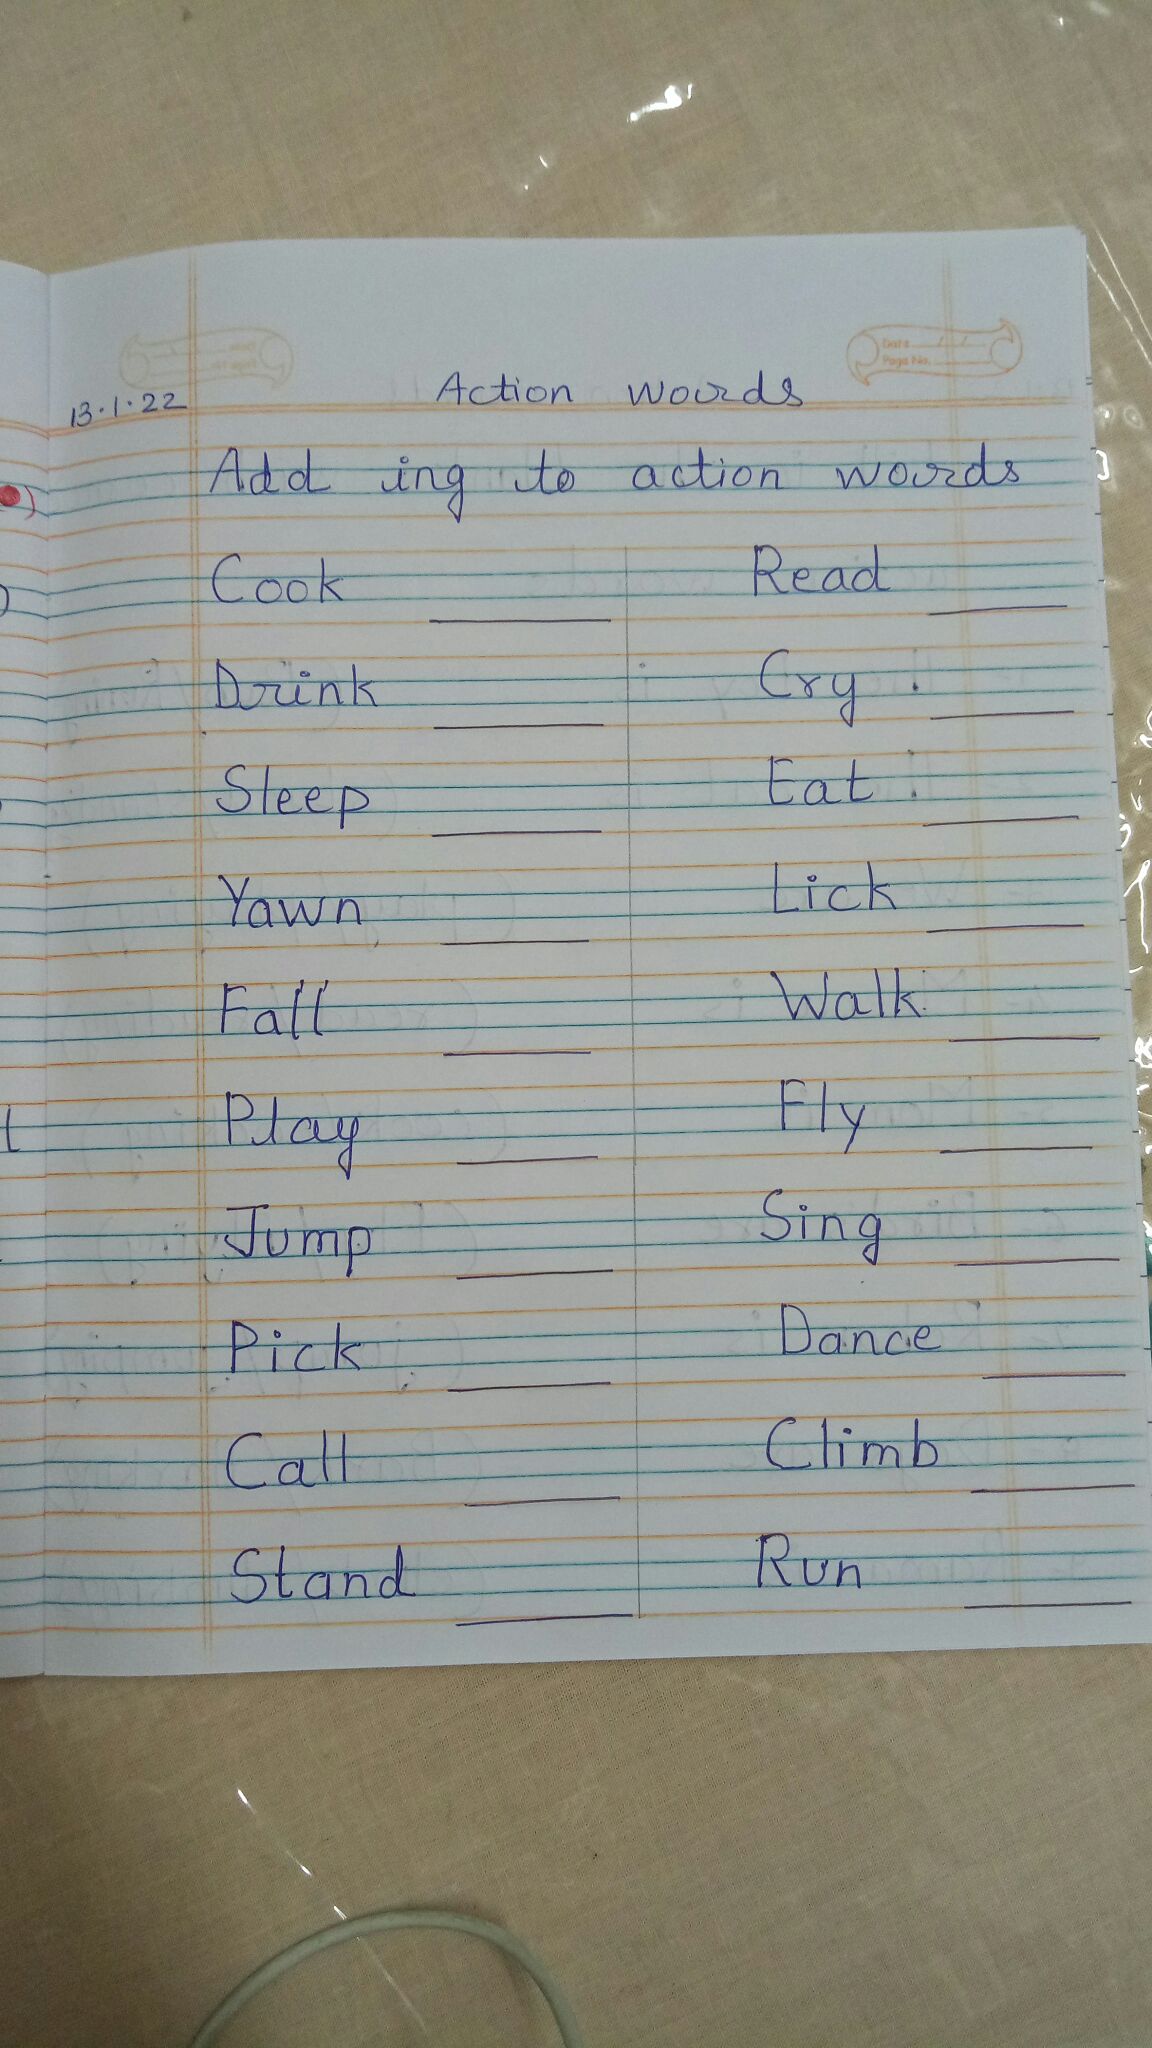 Date
Page No.
13.1.22
Action words
Add ing to action words
Cook ______ Read ______
Drink ______ Cry ______
Sleep ______ Eat ______
Yawn ______ Lick ______
Fall ______ Walk ______
Play ______ Fly ______
Jump ______ Sing ______
Pick ______ Dance ______
Call ______ Climb ______
Stand ______ Run ______